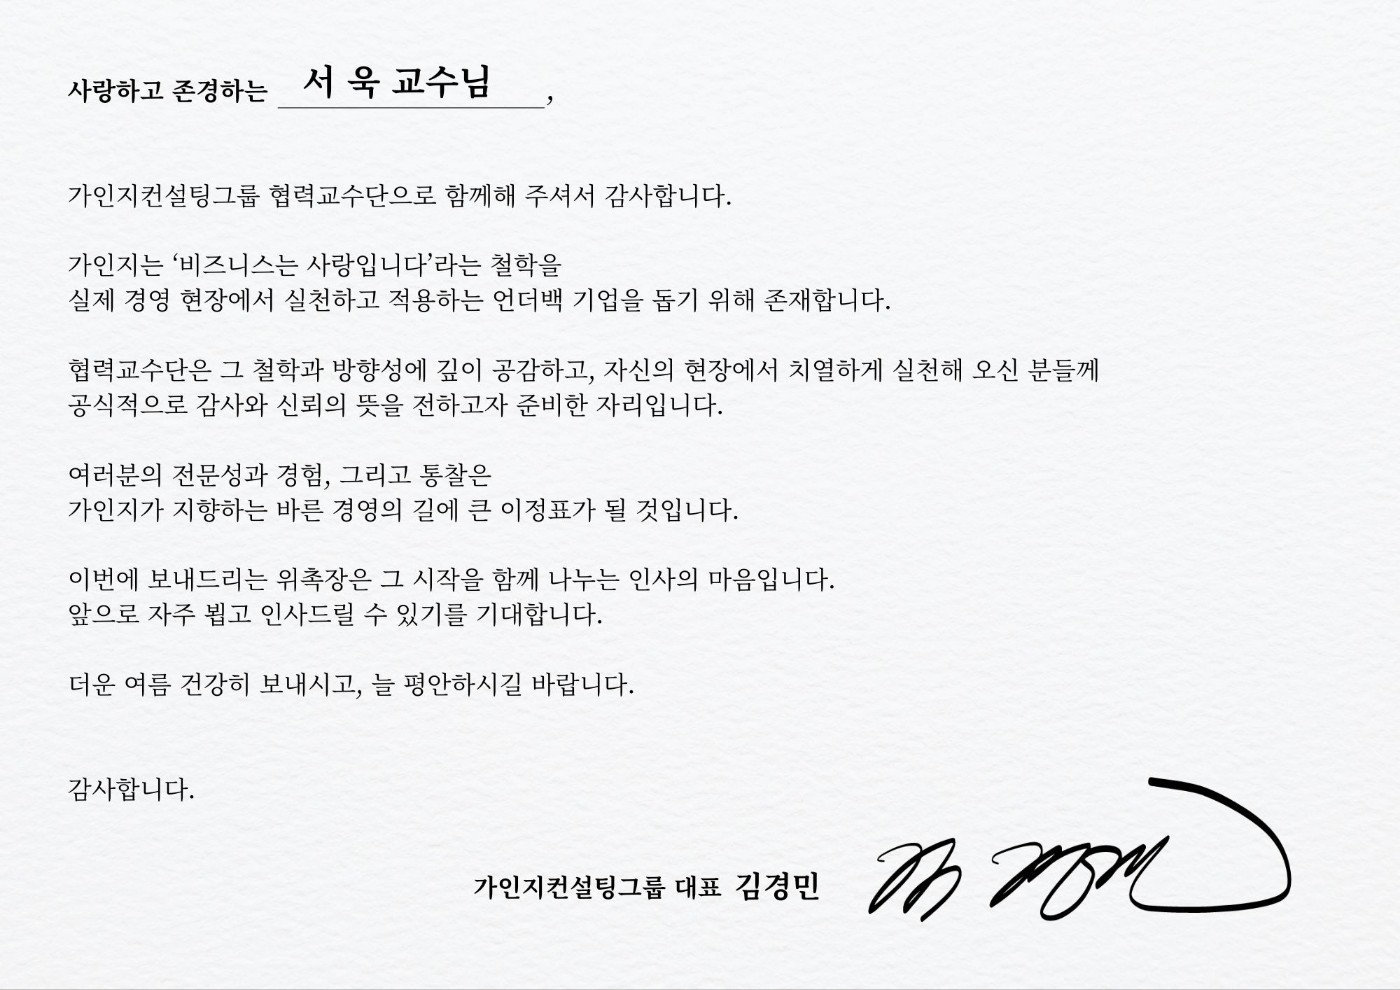 사랑하고 존경하는 서 욱 교수님,
가인지컨설팅그룹 협력교수단으로 함께해 주셔서 감사합니다.
가인지는 ‘비즈니스는 사랑입니다’라는 철학을
실제 경영 현장에서 실천하고 적용하는 언더백 기업을 돕기 위해 존재합니다.
협력교수단은 그 철학과 방향성에 깊이 공감하고, 자신의 현장에서 치열하게 실천해 오신 분들께
공식적으로 감사와 신뢰의 뜻을 전하고자 준비한 자리입니다.
여러분의 전문성과 경험, 그리고 통찰은
가인지가 지향하는 바른 경영의 길에 큰 이정표가 될 것입니다.
이번에 보내드리는 위촉장은 그 시작을 함께 나누는 인사의 마음입니다.
앞으로 자주 뵙고 인사드릴 수 있기를 기대합니다.
더운 여름 건강히 보내시고, 늘 평안하시길 바랍니다.
감사합니다.
가인지컨설팅그룹 대표 김경민